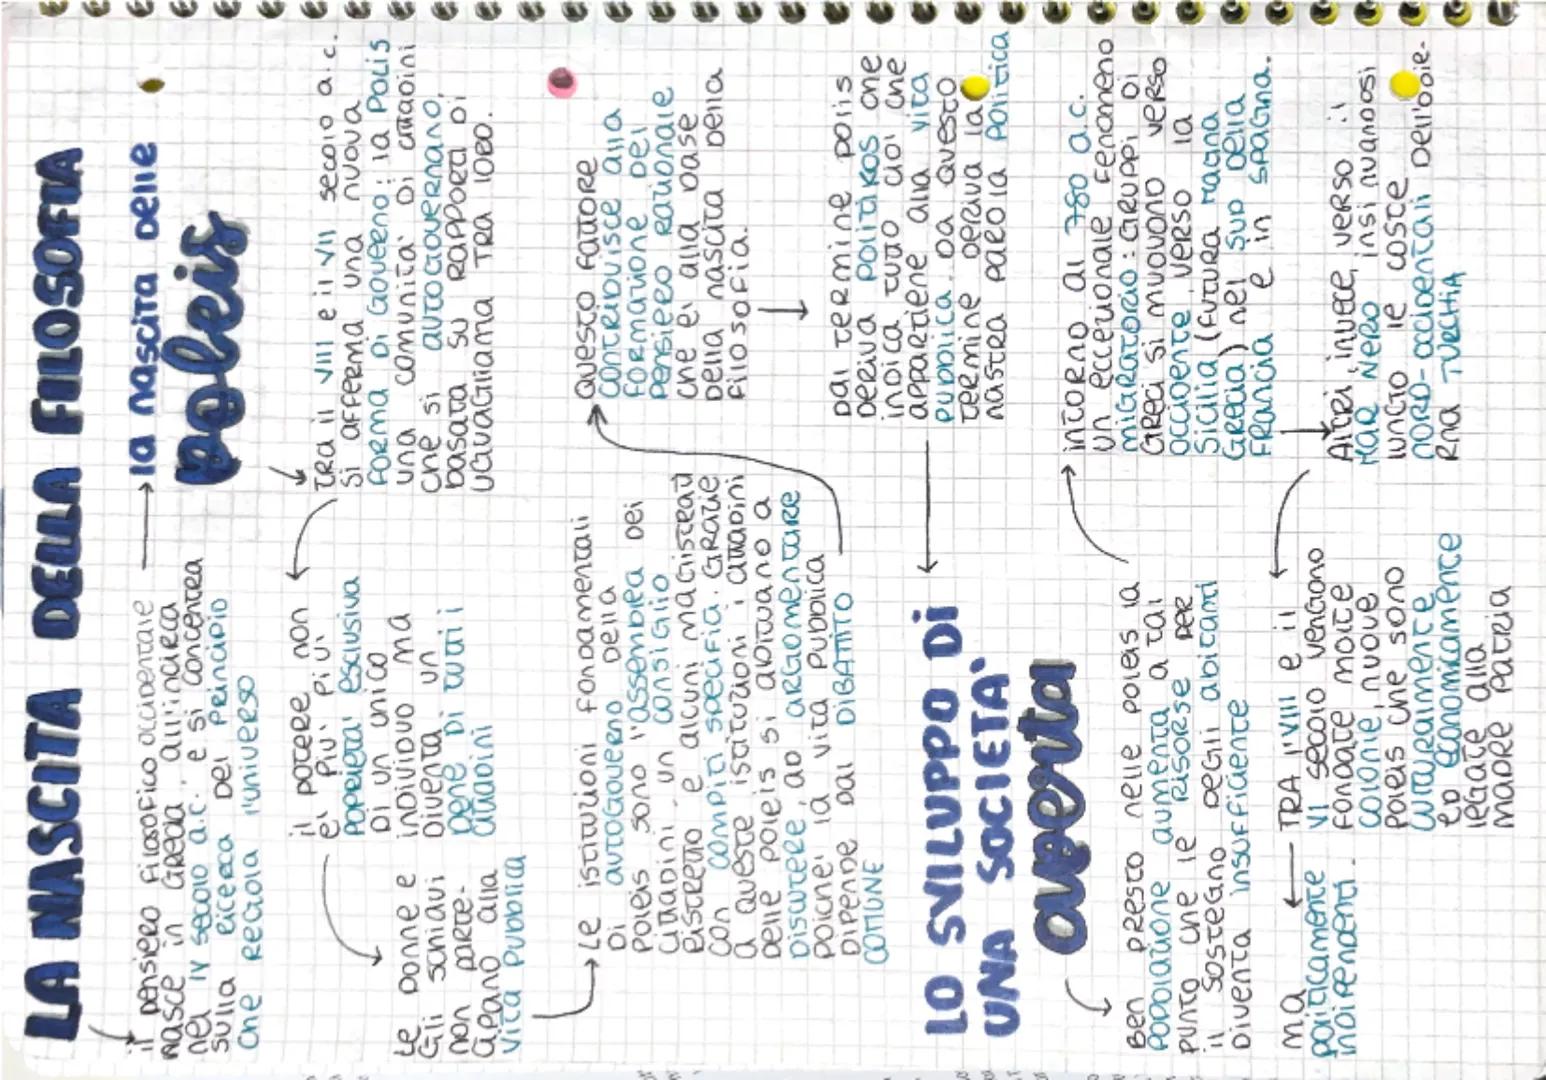 LA NASCITA DELLA FILOSOFIA
il pensiero filosofico occidentale
nasce in Grecia all'incirca
nel IV secolo a.C. e si concentra
sulla ricerca del principio
che regola l'universo
la nascita delle
poleis
tra il VIII e il VII secolo a.c.
si afferma una nuova
forma di governo: la polis
una comunità di cittadini
che si autogovernano,
basata su rapporti di
uguagliama tra loro.
il potere non
e' più più
proprietà esclusiva
di un unico
individuo ma
diventa un
bene di tutti i
cittadini
Le donne e
gli schiavi
non parte-
cipano alla
vita pubblica
Le istituzioni fondamentali
di autogoverno della
poleis sono l'assemblea dei
cittadini, un consiglio
ristretto e alcuni magistrati
con compiti specifici. Grazie
a queste istituzioni i cittadini
delle poleis si abituano a
discutere, ad argomentare
poiche' la vita pubblica
dipende dal dibattito
comune
Questo fattore
contribuisce alla
formazione del
pensiero razionale
che e' alla base
della nascita della
filosofia.
Dal termine polis
deriva politikos che
indica tutto ciò che
appartiene alla vita
pubblica. Da questo
termine deriva la
nostra parola politica
LO SVILUPPO DI
UNA SOCIETA'
aperta
Ben presto nelle poleis la
popolazione aumenta a tal
punto che le risorse per
il sostegno degli abitanti
diventa insufficiente
intorno al 780 a.c.
un eccezionale fenomeno
migratorio: gruppi di
Greci si muovono verso
occidente verso la
Sicilia (futura Magna
Grecia) nel sud della
Francia e in Spagna.
Altri, invece, verso il
Mar Nero, insinuandosi
lungo le coste
nord-occidentali dell'odie-
rna Turchia
TRA l'VIII e il
VI secolo vengono
fondate molte
colonie, nuove
poleis che sono
culturalmente
ed economicamente
legate alla
madre patria
ma
politicamente
indipendenti.